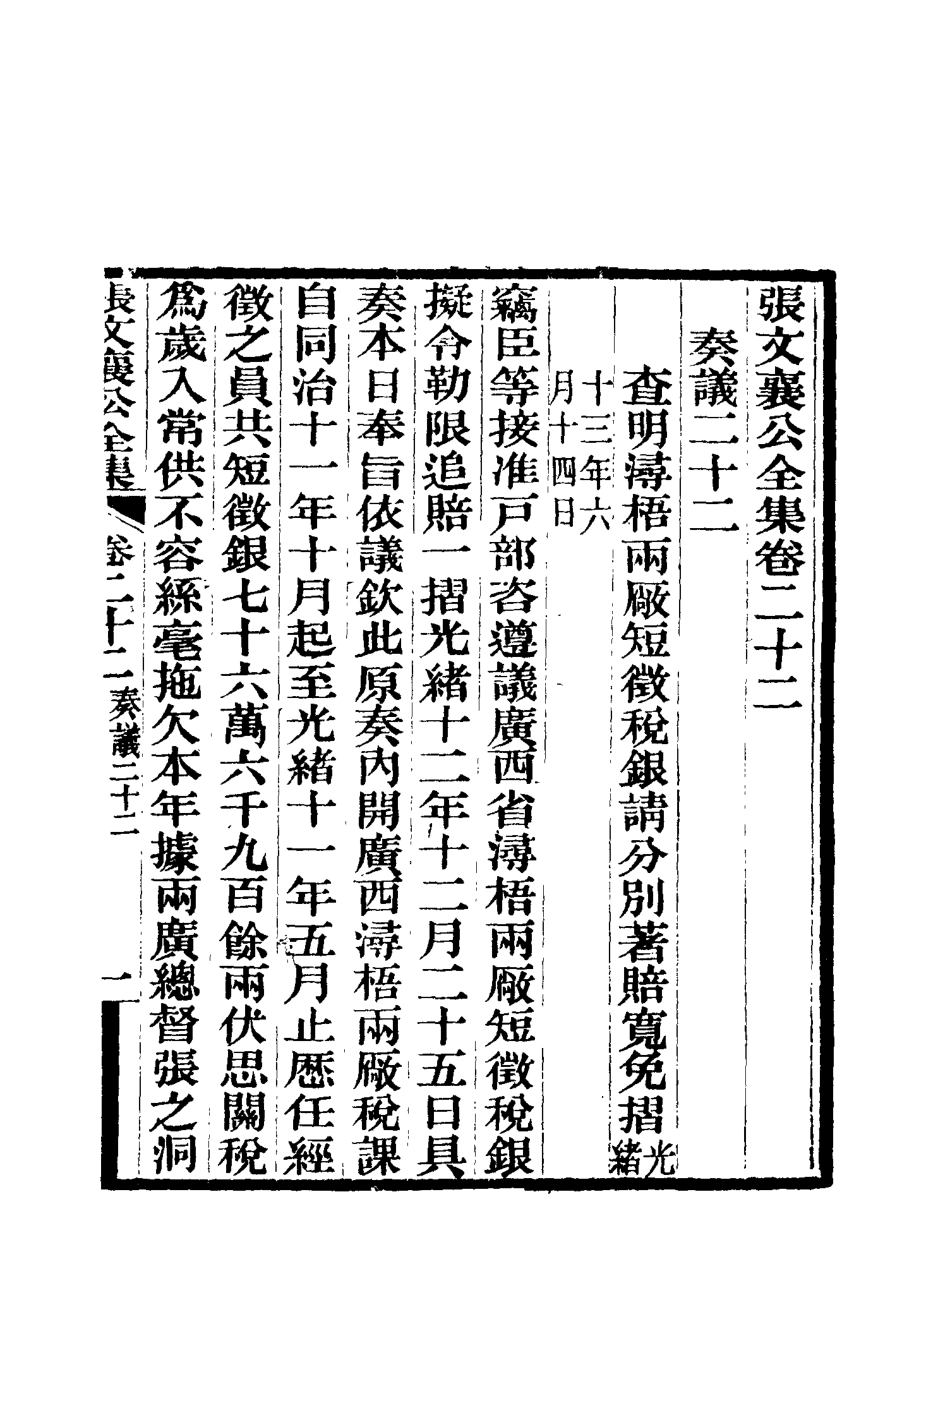 張文襄公全集卷二十二
奏議二十二
查明潯梧兩廠短徵稅銀請分別著賠寬免摺光緒
十三年六
月十四日
竊臣等接准戸部咨遵議廣西省潯梧兩廠短徵稅銀
擬令勒限追賠一摺光緒十二年十二月二十五日具
奏本日奉旨依議欽此原奏內開廣西潯梧兩廠稅課
自同治十一年十月起至光緒十一年五月止歷任經
徵之員共短徵銀七十六萬六千九百餘兩伏思關稅
爲歲入常供不容絲毫拖欠本年據兩廣總督張之洞
張文襄公全集 卷二十二 奏議二十二 一